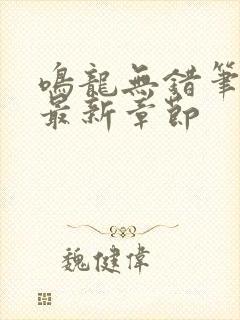 鳴龍無錯筆
最新章節
魏健偉